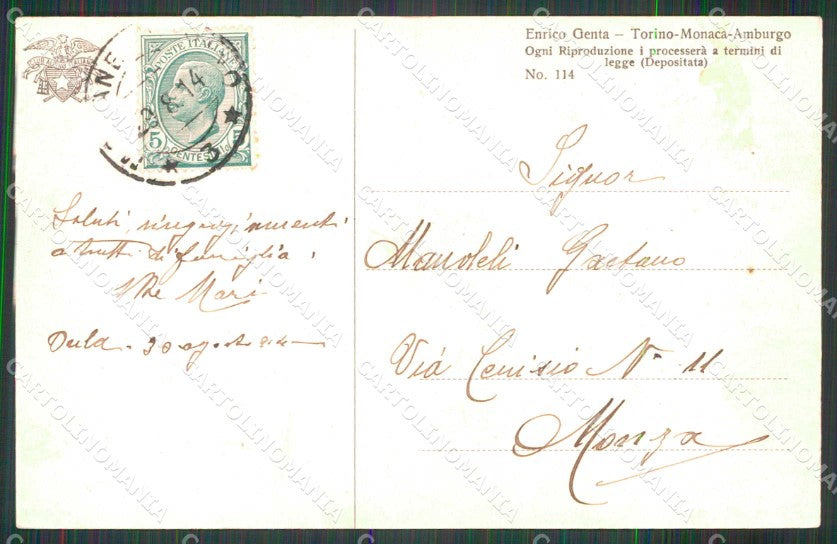 Enrico Genta – Torino-Monaca-Amburgo
Ogni Riproduzione i processerà a termini di
legge (Depositata)
No. 114
POSTE ITALIANE
5 CENTESIMI 5
8.14
Signor
Gaetano
Via Cenisio N. 11
Monza
Saluti ringraziamenti
a tutti di famiglia,
Mari
30 agosto
CARTOLINOMANIA